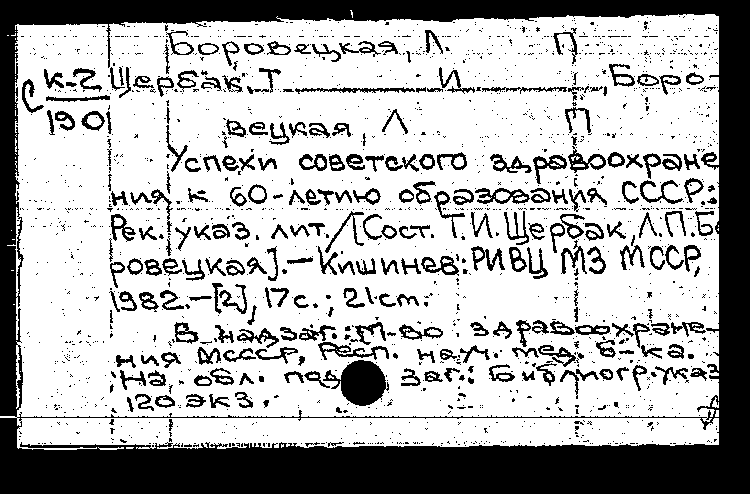 Боровецкая, Л. П
К-2 Щербак, Т И , Боро-
190
вецкая, Л. П
Успехи советского здравоохране
ния к 60-летию образования СССР.:
Рек. указ. лит./[Сост. Т.И.Щербак, Л.П.Бо
ровецкая].—Кишинев: РИВЦ МЗ МССР,
1982.—[2], 17с.; 21cm.
В надзаг.: М-во здравоохране-
ния МСССР, Респ. науч. мед. б-ка.
На обл. под заг.: Библиогр. указ
120 экз.